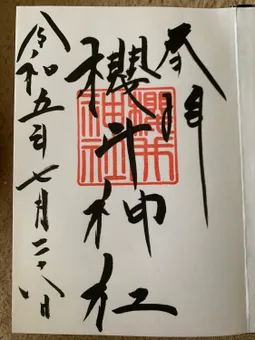 奉拝
櫻井神社
令和五年七月二十八日